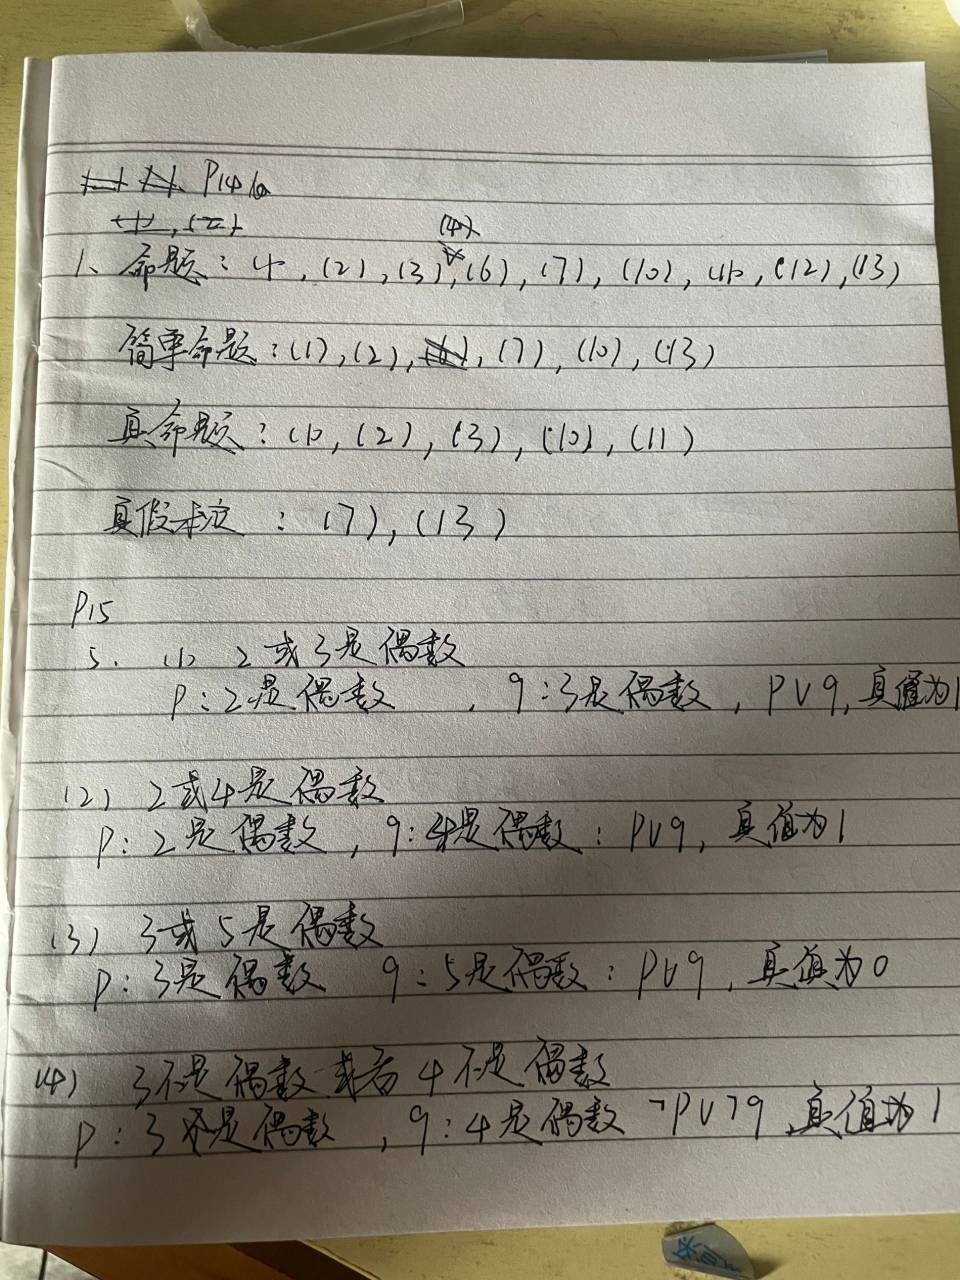 P14
1、命题：(1)，(2)，(3)，(6)，(7)，(10)，(11)，(12)，(13)
简单命题：(1)，(2)，(7)，(10)，(13)
真命题：(1)，(2)，(3)，(10)，(11)
真假未定：(7)，(13)
P15
5. (1) 2或3是偶数
p：2是偶数，q：3是偶数，p∨q，真值为1
(2) 2或4是偶数
p：2是偶数，q：4是偶数：p∨q，真值为1
(3) 3或5是偶数
p：3是偶数 q：5是偶数：p∨q，真值为0
(4) 3不是偶数或者4不是偶数
p：3是偶数，q：4是偶数 ¬p∨¬q，真值为1